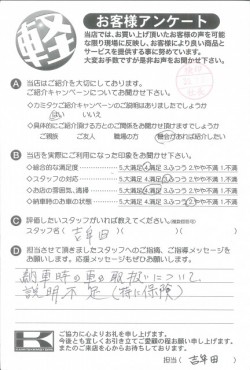 軽
お客様アンケート
当店では、お買い上げ頂いたお客様の声を可能
な限り現場に反映し、お客様により良い商品と
サービスを提供する事に努めています。
大変お手数ですが是非お声をお聞かせ下さい。
A 当店はご紹介を大切にしております。
ご紹介キャンペーンについてお聞かせ下さい。
◇カミタクご紹介キャンペーンのご説明はありましたでしょうか
はい いいえ
◇具体的にご紹介頂ける方との関係をお聞かせ頂けますでしょうか
ご親族 ご友人 職場の方 機会があれば紹介したい
B 当店を実際にご利用になった印象をお聞かせ下さい。
◇総合的な満足度 5.大満足 4.満足 3.ふつう 2.やや不満 1.不満
◇スタッフの対応 5.大満足 4.満足 3.ふつう 2.やや不満 1.不満
◇お店の雰囲気、清掃 5.大満足 4.満足 3.ふつう 2.やや不満 1.不満
◇納車時のお車の状態 5.大満足 4.満足 3.ふつう 2.やや不満 1.不満
C 評価したいスタッフがいれば教えてください。
スタッフ名( 吉牟田 )
D 担当させて頂きましたスタッフへのご指摘、ご指導メッセージを
お願いします。応援メッセージもぜひお願いします。
納車時の車の取扱いについて
説明不足(特に保険)
K
ご協力に心よりお礼を申し上げます。
今後とも宜しくお引き立てご愛顧の程お願い申し上げます。
またのご来店を心からお待ちしております。
担当( 吉牟田 )